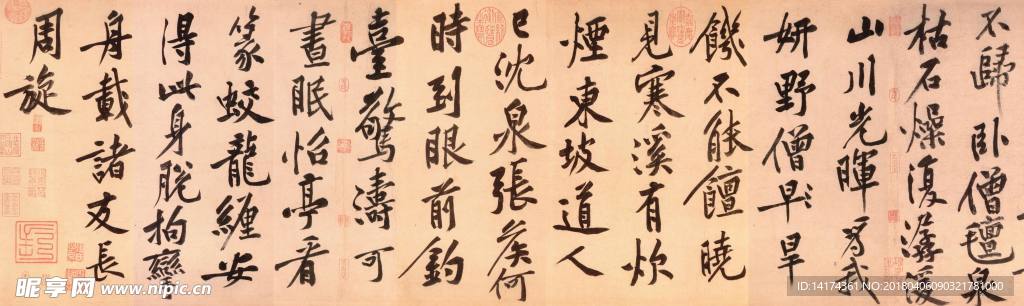 不歸臥僧氊泉
枯石燥復潺湲
山川光暉為我
妍野僧早旱
饑不能饘曉
見寒溪有炊
煙東坡道人
已沈泉張侯何
時到眼前釣
臺驚濤可
晝眠怡亭看
篆蛟龍纏安
得此身脫拘攣
舟載諸友長
周旋
昵享网 www.nipic.cn
ID:14174361 NO:20180406090321781000